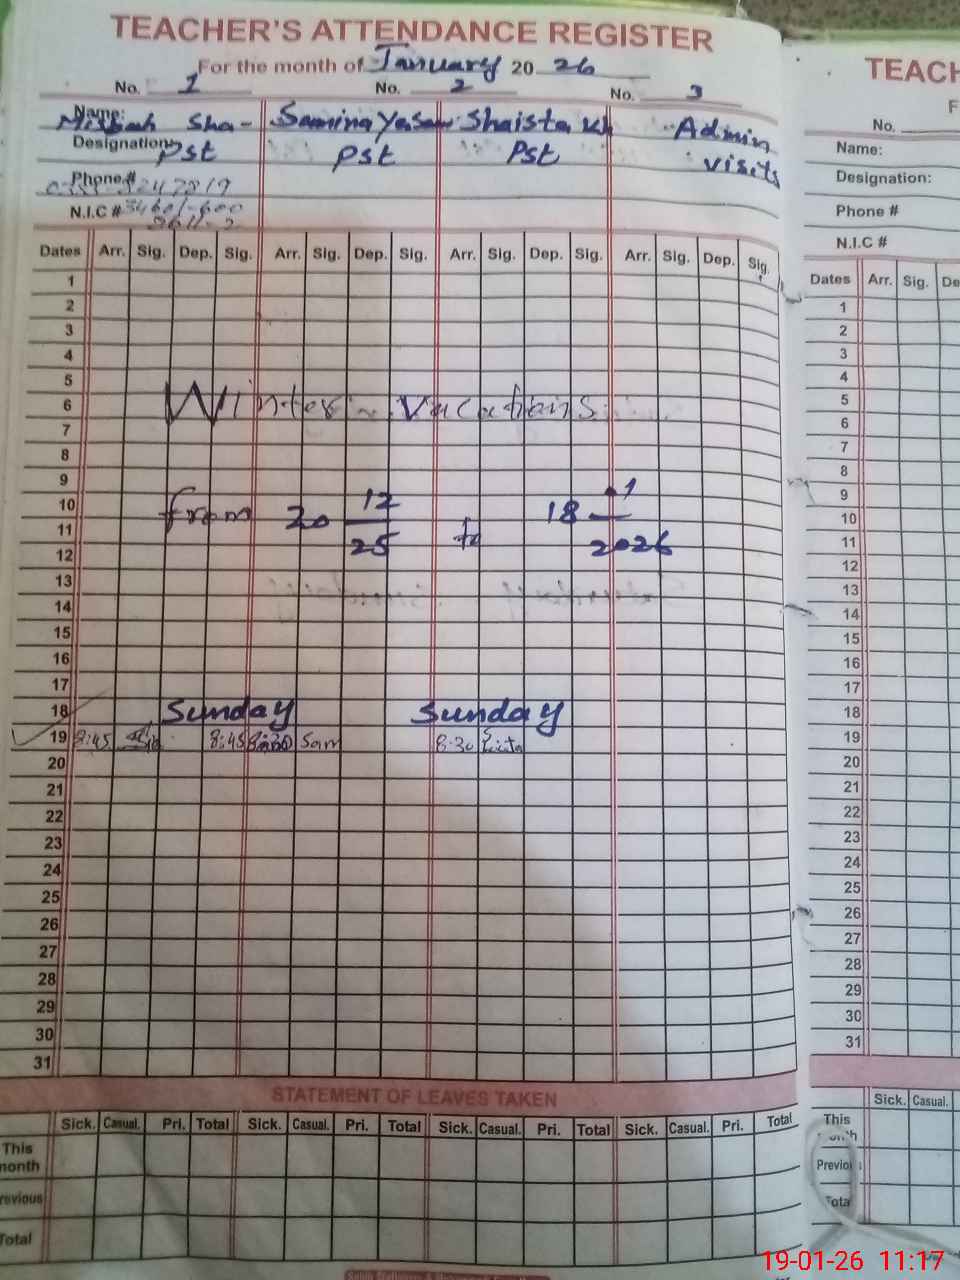 TEACHER'S ATTENDANCE REGISTER
For the month of January 20 26
No. 1 No. 2 No. 3
Name: Misbah Sha- Samina Yasm Shaista Kh Admin visits
Designation: Pst Pst Pst
Phone#
N.I.C #
Dates Arr. Sig. Dep. Sig. Arr. Sig. Dep. Sig. Arr. Sig. Dep. Sig. Arr. Sig. Dep. Sig.
1
2
3
4
5
6 Winter Vacations
7
8
9
10
11 from 20 12/25 to 18 1/2026
12
13
14
15
16
17
18 Sunday Sunday
19 8:45 8:45 Sam 8:30
20
21
22
23
24
25
26
27
28
29
30
31
STATEMENT OF LEAVES TAKEN
Sick. Casual. Pri. Total Sick. Casual. Pri. Total Sick. Casual. Pri. Total Sick. Casual. Pri. Total
This month
revious
Total
TEACH
F
No.
Name:
Designation:
Phone #
N.I.C #
Dates Arr. Sig. De
1
2
3
4
5
6
7
8
9
10
11
12
13
14
15
16
17
18
19
20
21
22
23
24
25
26
27
28
29
30
31
Sick. Casual.
This
Previo
Tota
19-01-26 11:17